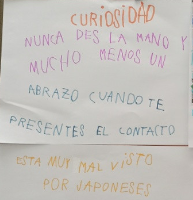 CURIOSIDAD
NUNCA DES LA MANO Y
MUCHO MENOS UN
ABRAZO CUANDO TE
PRESENTES EL CONTACTO
ESTA MUY MAL VISTO
POR JAPONESES